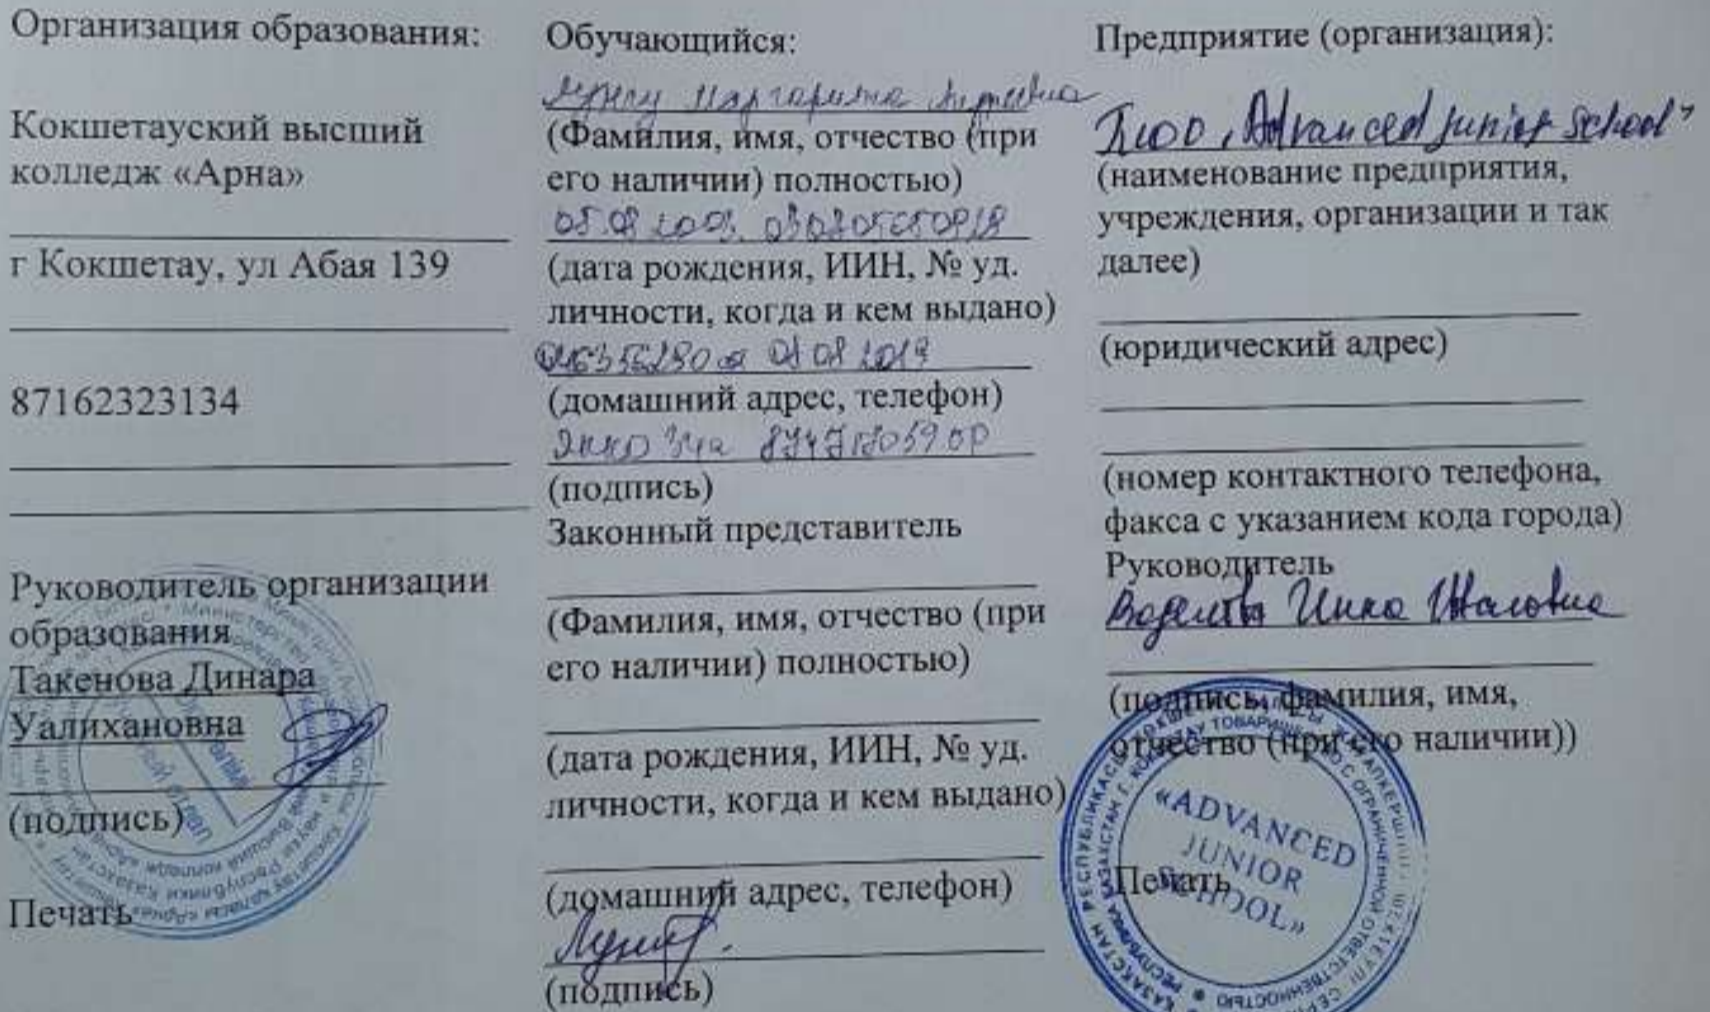 Организация образования:
Кокшетауский высший
колледж «Арна»
г Кокшетау, ул Абая 139
87162323134
Руководитель организации
образования
Такенова Динара
Уалихановна
(подпись)
Печать
Обучающийся:
Маргарита
(Фамилия, имя, отчество (при
его наличии) полностью)
05.08.2003.
(дата рождения, ИИН, № уд.
личности, когда и кем выдано)
(домашний адрес, телефон)
(подпись)
Законный представитель
(Фамилия, имя, отчество (при
его наличии) полностью)
(дата рождения, ИИН, № уд.
личности, когда и кем выдано)
(домашний адрес, телефон)
(подпись)
Предприятие (организация):
ТОО „Advanced junior school”
(наименование предприятия,
учреждения, организации и так
далее)
(юридический адрес)
(номер контактного телефона,
факса с указанием кода города)
Руководитель
Инна
(подпись, фамилия, имя,
отчество (при его наличии))
Печать
«ADVANCED
JUNIOR
SCHOOL»